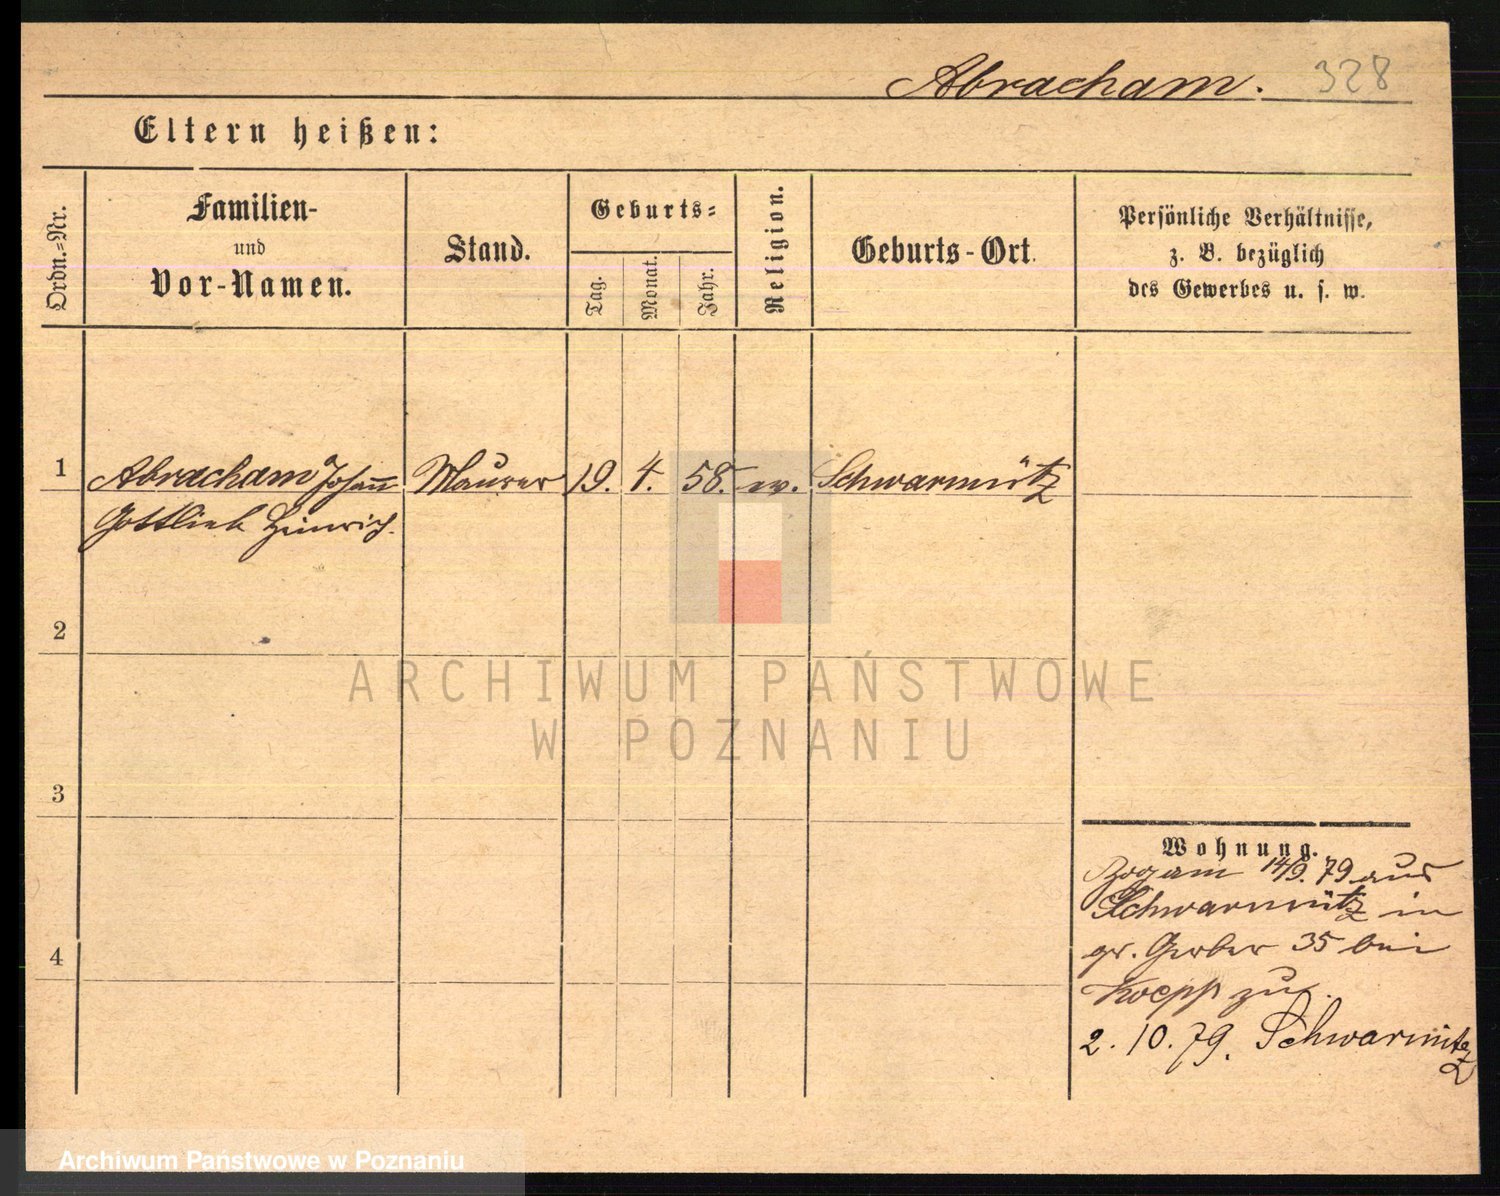 Abracham. 328
Eltern heißen:
Ordn.=Nr.
Familien-
und
Vor-Namen.
Stand.
Geburts=
Tag.
Monat.
Jahr.
Religion.
Geburts-Ort.
Persönliche Verhältnisse,
z. B. bezüglich
des Gewerbes u. s. w.
1 Abracham Johann Maurer 19. 4. 58. ev. Schwarmütz
Gottlieb Heinrich.
2
ARCHIWUM PAŃSTWOWE
W POZNANIU
3
Wohnung.
Zog am 14/9. 79 aus
Schwarmütz in
gr. Gerber 35 bei
Koepp zu.
4
2. 10. 79. Schwarmitz
Archiwum Państwowe w Poznaniu